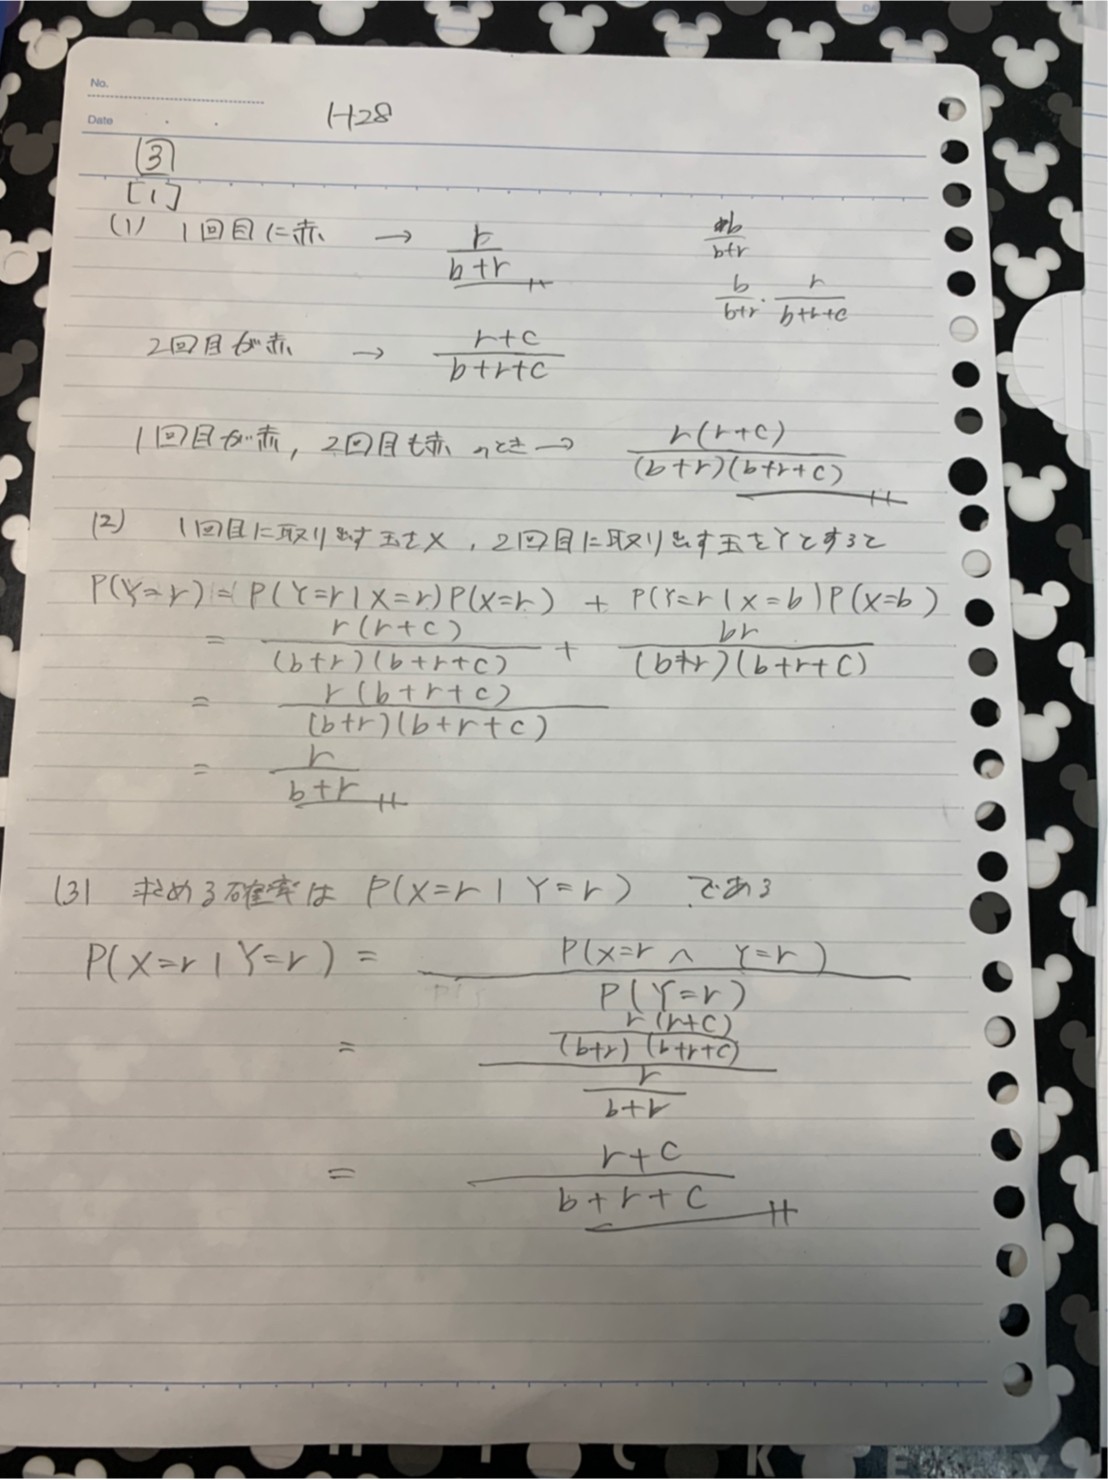 No.
Date
H28
[3]
[1]
(1) 1回目に赤 → r/(b+r)
b/(b+r)
b/(b+r) · r/(b+r+c)
2回目が赤 → (r+c)/(b+r+c)
1回目が赤, 2回目も赤 のとき → r(r+c)/((b+r)(b+r+c))
(2) 1回目に取り出す玉をX, 2回目に取り出す玉をYとすると
P(Y=r) = P(Y=r|X=r)P(X=r) + P(Y=r|X=b)P(X=b)
= r(r+c)/((b+r)(b+r+c)) + br/((b+r)(b+r+c))
= r(b+r+c)/((b+r)(b+r+c))
= r/(b+r)
(3) 求める確率は P(X=r|Y=r) である
P(X=r|Y=r) = P(X=r ∧ Y=r)/P(Y=r)
= (r(r+c)/((b+r)(b+r+c)))/(r/(b+r))
= (r+c)/(b+r+c)